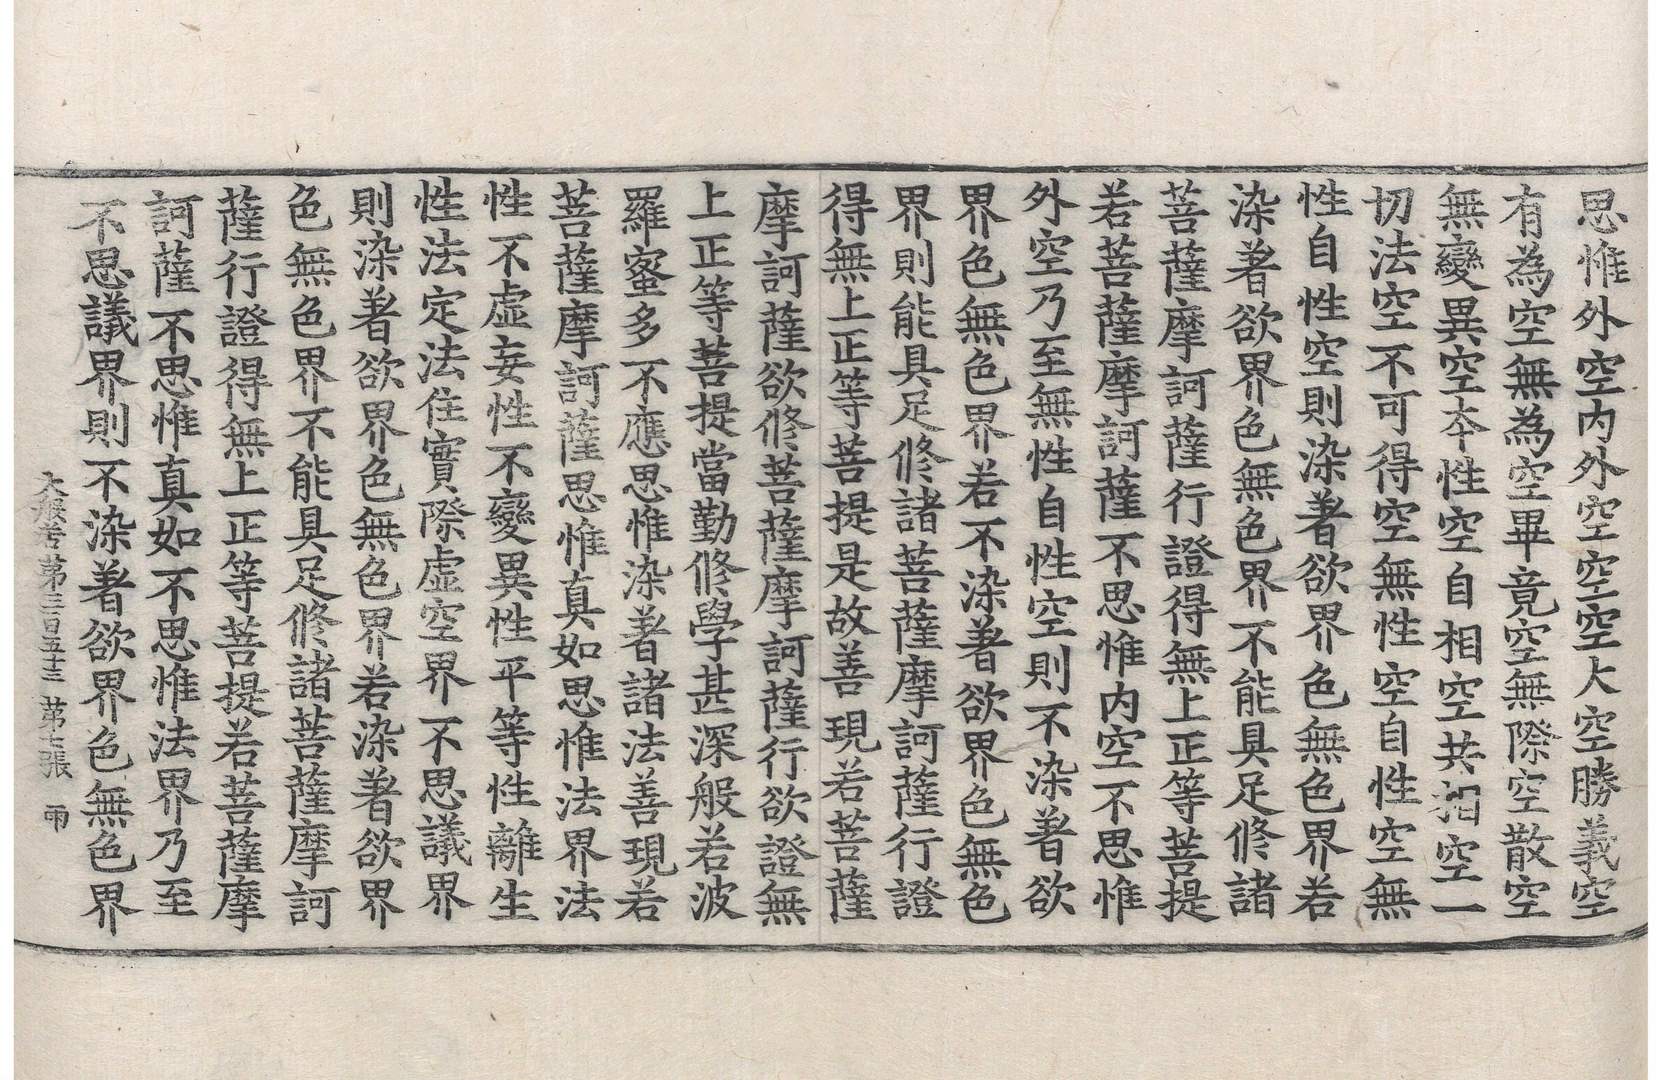 思惟外空内外空空空大空勝義空
有為空無為空畢竟空無際空散空
無變異空本性空自相空共相空一
切法空不可得空無性空自性空無
性自性空則染著欲界色無色界若
染著欲界色無色界不能具足修諸
菩薩摩訶薩行證得無上正等菩提
若菩薩摩訶薩不思惟内空不思惟
外空乃至無性自性空則不染著欲
界色無色界若不染著欲界色無色
界則能具足修諸菩薩摩訶薩行證
得無上正等菩提是故善現若菩薩
摩訶薩欲修菩薩摩訶薩行欲證無
上正等菩提當勤修學甚深般若波
羅蜜多不應思惟染著諸法善現若
菩薩摩訶薩思惟真如思惟法界法
性不虛妄性不變異性平等性離生
性法定法住實際虛空界不思議界
則染著欲界色無色界若染著欲界
色無色界不能具足修諸菩薩摩訶
薩行證得無上正等菩提若菩薩摩
訶薩不思惟真如不思惟法界乃至
不思議界則不染著欲界色無色界
大般若第三百五十三 第七張